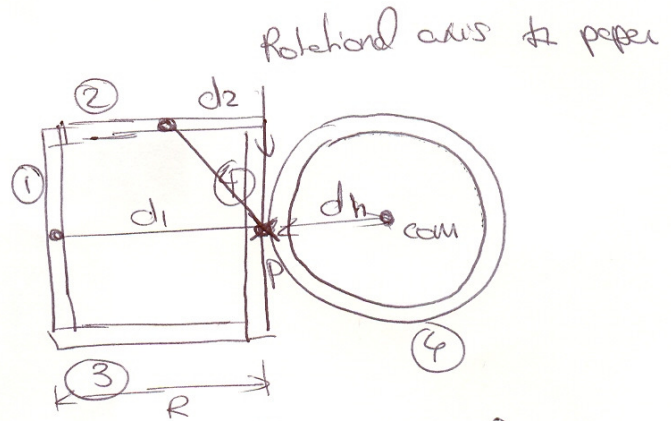 Rotational axis to paper
② d2
①
④
d1
dh
com
P
④
③
R